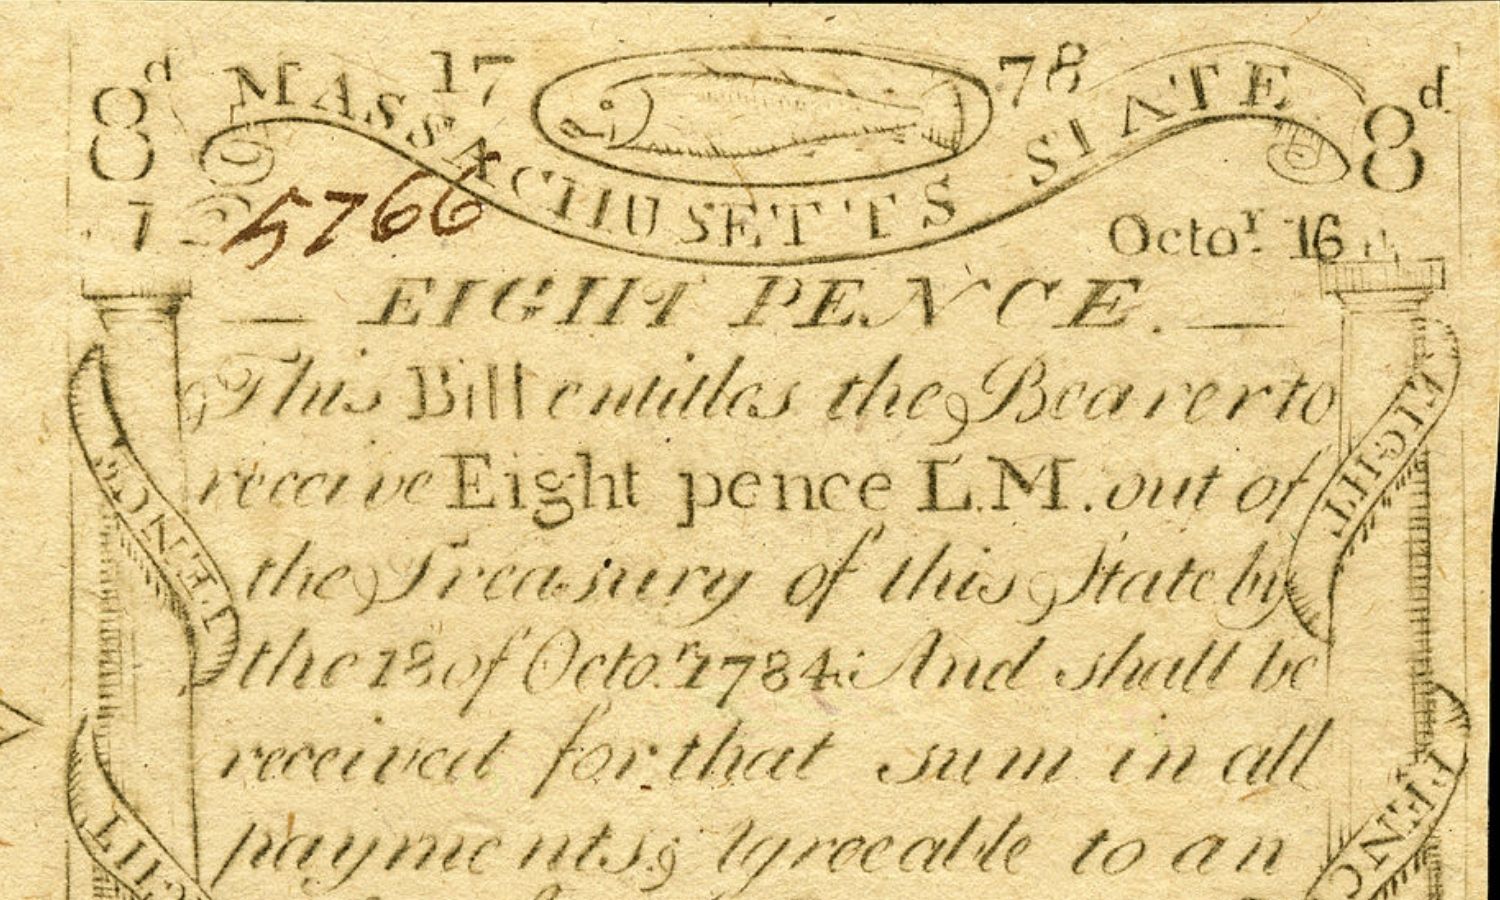 8d 17 78 8d
MASSACHUSETTS STATE
5766
Octor. 16
EIGHT PENCE.
This Bill entitles the Bearer to
receive Eight pence L.M. out of
the Treasury of this State by
the 18 of Octo.r 1784: And shall be
received for that sum in all
payments, Agreeable to an
PENCE
EIGHT